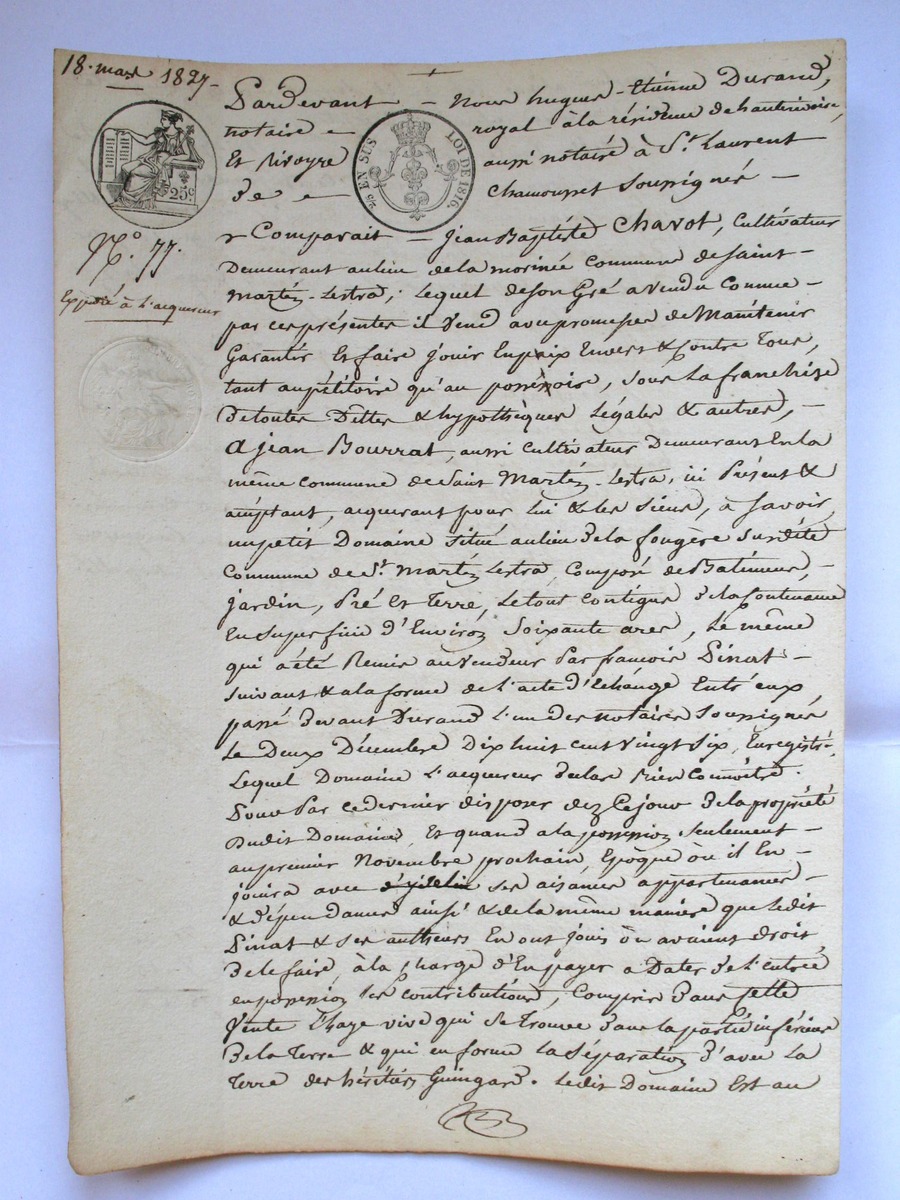 18. mars 1827
Pardevant - Nous hugues - Etiénne Durand,
notaire royal à la résidence de hauterivoire,
Et Rivoyre aussi notaire à St. Laurent
de Chamousset soussignés -
EN SUS LOI DE 1816.
25c
N.° 77.
Expédié à l'acquereur
Comparait - Jean Baptiste Chavot, Cultivateur
Demeurant au lieu de la morinée commune de saint-
Martin-Lestra; Lequel de son Gré a vendu comme -
par ces présentes il vend avec promesse de Maintenir
Garantir Et faire jouir En paix Envers & Contre Tous,
tant au pétitoire qu'au possessoire, sous la franchise
de toutes Dettes & hypothèques Légales & autres, -
A jean Bourrat, aussi cultivateur Demeurant En la
même commune de Saint Martin-Lestra, ici Présent &
acceptant, acquerant pour Lui & les siens, à savoir,
un petit Domaine situé au lieu de la fougère susdite
Commune de St. Martin Lestra, Composé de Batimens, -
jardin, Pré Et Terre, Le tout Contigus de la Contenance
En superficie d'Environ Soixante ares, Le même
qui a été Remis au Vendeur Par françois Pinat -
suivant & a la forme de L'acte d'Echange Entr'eux
passé devant Durand L'un des notaires soussignés
Le Deux Décembre Dix huit cent vingt Six, Enregistré.
Lequel Domaine L'acquereur declare Bien Connoitre.
Pour Par ce dernier disposer dez Ce jour de la propriété
Dudit Domaine, Et quand a la possession seulement -
au premier Novembre prochain, Epoque où il En -
jouira avec ses aisances appartenances -
& dépendances ainsi & de la même maniere que Ledit
Pinat & ses autheurs En ont jouis ou avaient droit
de le faire, à la Charge d'En payer a Dater de L'entrée
en possession les Contributions, Compris dans Cette
Vente L'haye vive qui se trouve dans la partie inférieure
de la Terre & qui en forme La séparation d'avec La
Terre des héritiers Guingard. Ledit Domaine Est au